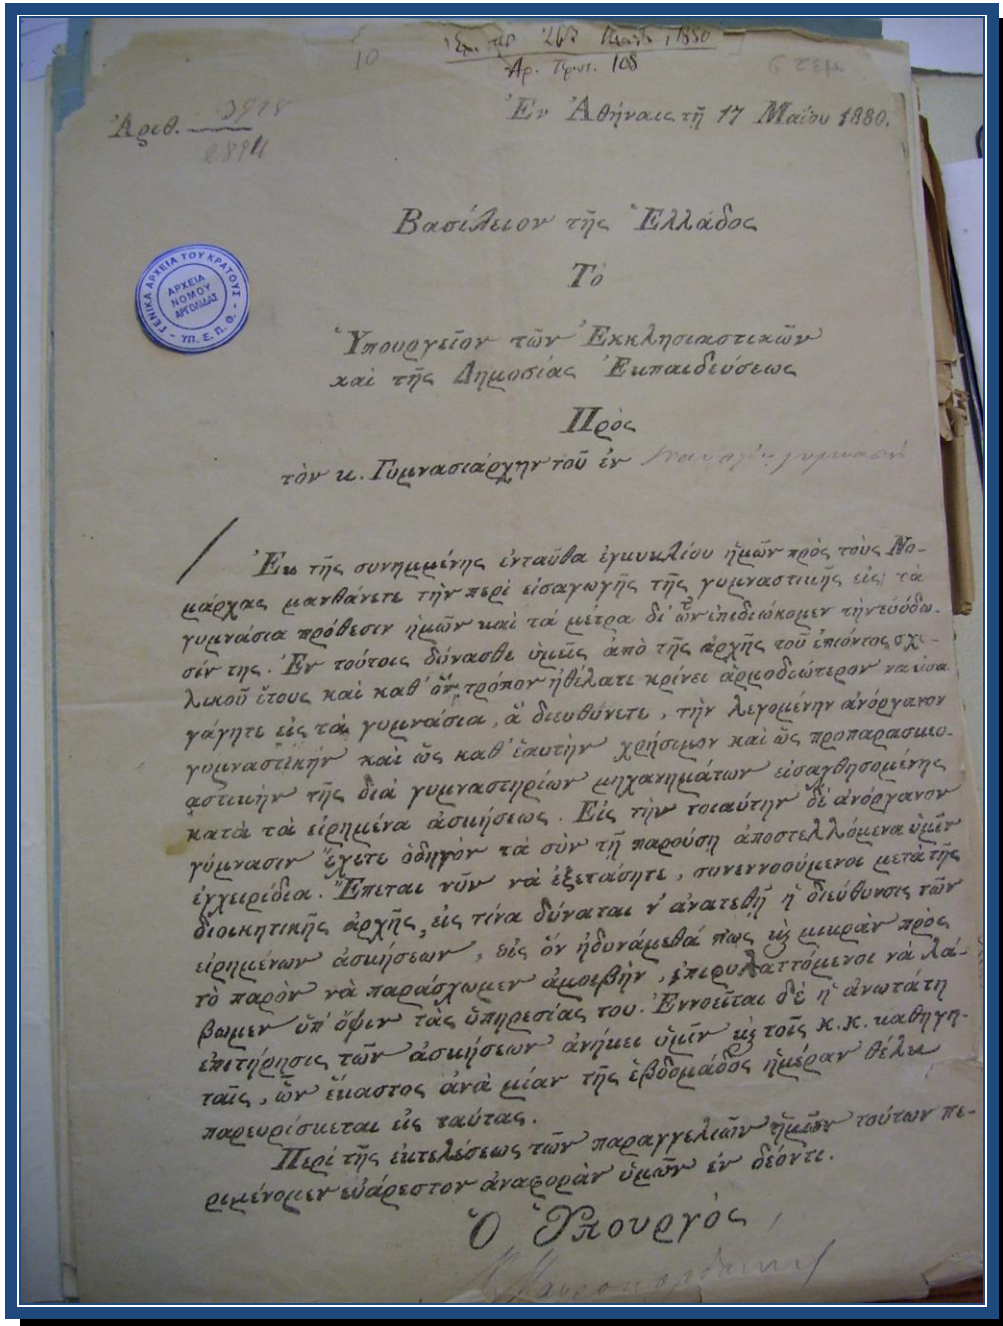 10
Ἀρ. Πρωτ. 108
Ἀριθ.
Ἐν Ἀθήναις τῇ 17 Μαΐου 1880.
Βασίλειον τῆς Ἑλλάδος
Τὸ
Ὑπουργεῖον τῶν Ἐκκλησιαστικῶν
καὶ τῆς Δημοσίας Ἐκπαιδεύσεως
Πρὸς
τὸν κ. Γυμνασιάρχην τοῦ ἐν
ΓΕΝΙΚΑ ΑΡΧΕΙΑ ΤΟΥ ΚΡΑΤΟΥΣ - ΥΠ. Ε. Π. Θ. -
ΑΡΧΕΙΑ
ΝΟΜΟΥ
ΑΡΓΟΛΙΔΑΣ
Ἐκ τῆς συνημμένης ἐνταῦθα ἐγκυκλίου ἡμῶν πρὸς τοὺς Νο-
μάρχας μανθάνετε τὴν περὶ εἰσαγωγῆς τῆς γυμναστικῆς εἰς τὰ
γυμνάσια πρόθεσιν ἡμῶν καὶ τὰ μέτρα δι' ὧν ἐπιδιώκομεν τὴν εὐόδω-
σίν της. Ἐν τούτοις δύνασθε ὑμεῖς ἀπὸ τῆς ἀρχῆς τοῦ ἐπιόντος σχο-
λικοῦ ἔτους καὶ καθ' ὅν τρόπον ἠθέλατε κρίνει ἁρμοδιώτερον να εἰσα
γάγητε εἰς τὰ γυμνάσια, ἅ διευθύνετε, τὴν λεγομένην ἀνόργανον
γυμναστικὴν καὶ ὥς καθ' ἑαυτὴν χρήσιμον καὶ ὥς προπαρασκευ-
αστικὴν τῆς διὰ γυμναστηρίων μηχανημάτων εἰσαχθησομένης
κατὰ τὰ εἰρημένα ἀσκήσεως. Εἰς τὴν τοιαύτην δὲ ἀνόργανον
γύμνασιν ἔχετε ὁδηγὸν τὰ σὺν τῇ παρούσῃ ἀποστελλόμενα ὑμῖν
ἐγχειρίδια. Ἔπεται νῦν νὰ ἐξετάσητε, συνεννοούμενοι μετὰ τῆς
διοικητικῆς ἀρχῆς, εἰς τίνα δύναται ν' ἀνατεθῇ ἡ διεύθυνσις τῶν
εἰρημένων ἀσκήσεων, εἰς ὅν ἠδυνάμεθά πως κ̀ μικρὰν πρὸς
τὸ παρὸν νὰ παράσχωμεν ἀμοιβὴν, ἐπιφυλαττόμενοι νὰ λά-
βωμεν ὑπ' ὄψιν τὰς ὑπηρεσίας του. Ἐννοεῖται δὲ ἡ ἀνωτάτη
ἐπιτήρησις τῶν ἀσκήσεων ἀνήκει ὑμῖν κ̀ τοῖς κ.κ. καθηγη-
ταῖς, ὧν ἕκαστος ἀνὰ μίαν τῆς ἑβδομάδος ἡμέραν θέλει
παρευρίσκεται εἰς ταύτας.
Περὶ τῆς ἐκτελέσεως τῶν παραγγελιῶν ἡμῶν τούτων πε-
ριμένομεν εὐάρεστον ἀναφορὰν ὑμῶν ἐν δέοντι.
Ὁ Ὑπουργὸς